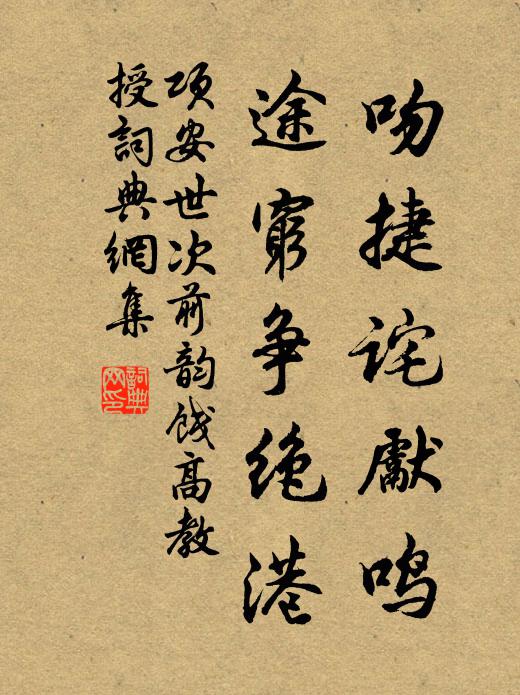 吻捷詫獻鸣
途窮争绝港
项安世次前韵餞高教
授詞典網集
詞典网印